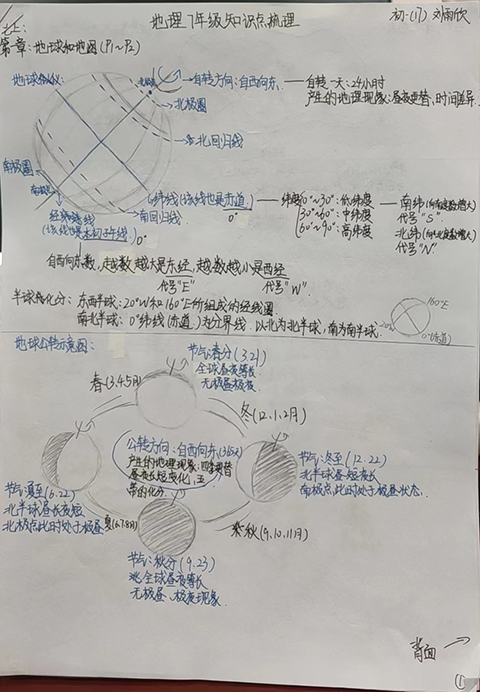 地理7年级知识点梳理
初一(17) 刘雨欣
第一章:地球和地图(P1~P2)
地球仪:
自转方向:自西向东
自转一天:24小时
产生的地理现象:昼夜更替、时间差异
北极圈
北回归线
南极圈
纬线(该线也是赤道) 0°
纬度0°~30°:低纬度
30°~60°:中纬度
60°~90°:高纬度
南纬
代号"S"
北纬
代号"N"
经线
(该线也是本初子午线) 0°
南回归线
自西向东数,越数越大是东经,越数越小是西经
代号"E" 代号"W"
半球划分:东西半球:20°W和160°E所组成的经线圈.
160°E
南北半球:0°纬线(赤道)为分界线.以北为北半球,南为南半球.
20°W
0°(赤道)
地球公转示意图:
节气:春分(3.21)
全球昼夜等长
无极昼极夜
春(3.4.5月)
冬(12.1.2月)
公转方向:自西向东(365天)
产生的地理现象:四季更替
昼夜长短变化,五
带的划分
节气:冬至(12.22)
北半球昼短夜长
南极点,此时处于极昼状态.
节气:夏至(6.22)
北半球昼长夜短
北极点此时处于极昼
夏(6.7.8月)
秋(9.10.11月)
节气:秋分(9.23)
全球昼夜等长
无极昼、极夜现象
背面→
①